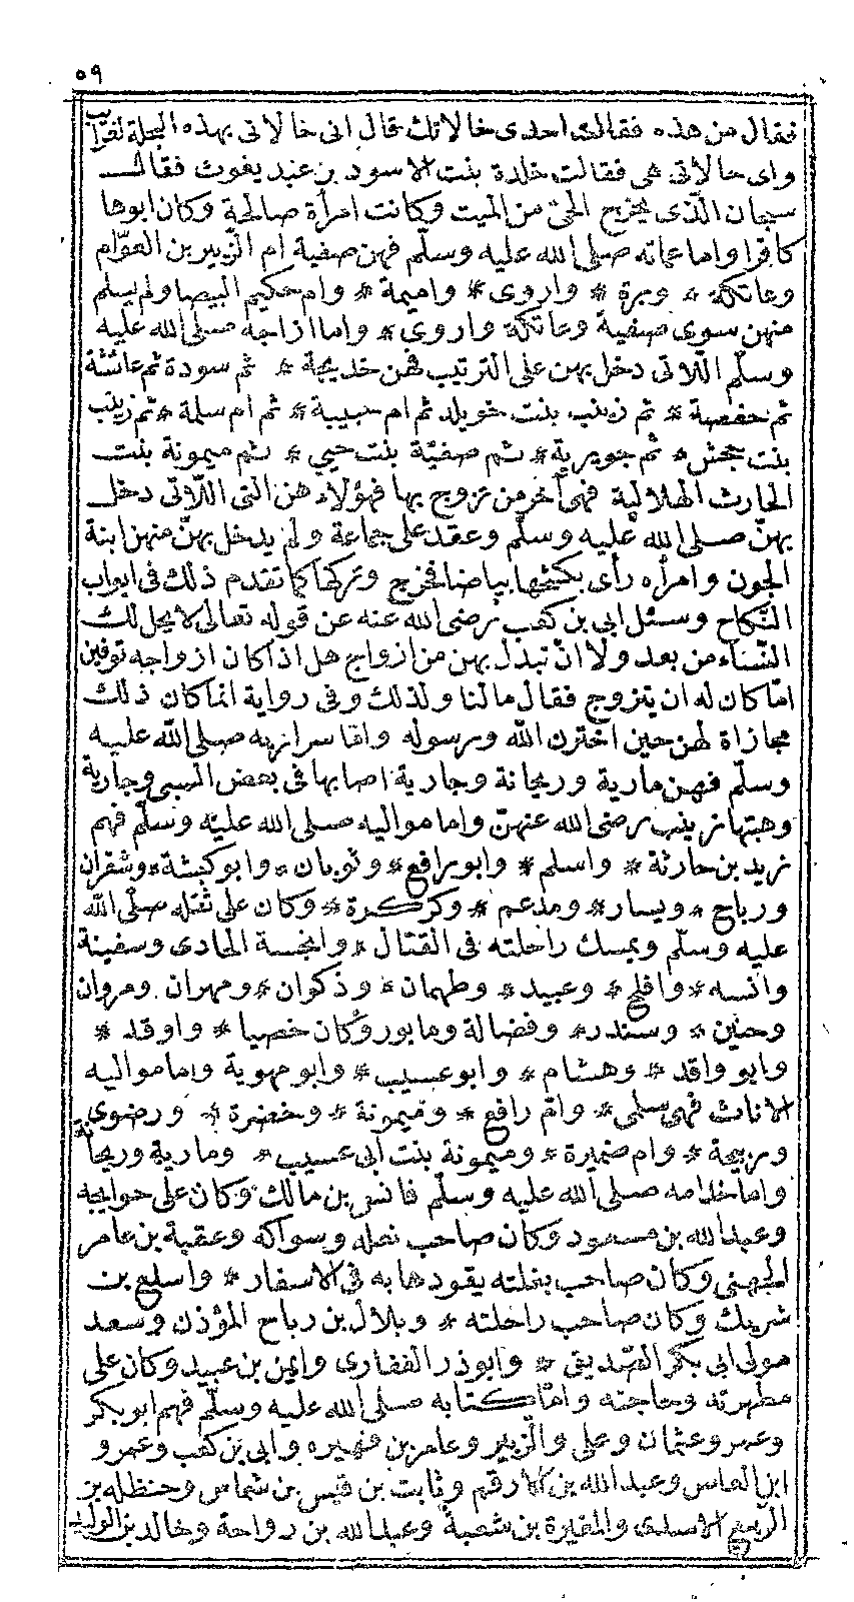 ٥٩
فقال من هذه فقالت احدى خالاتك قال انى خالاتى بهذه البجلة لغرايب
واى خالاتى هى فقالت خلدة بنت الاسود بن عبد يغوث فقالـــ
سبحان الّذى يخرج الحىّ من الميت وكانت امرأة صالحة وكان ابوها
كافرا واما عماته صلى الله عليه وسلّم فهن صفية ام الزّبير بن العوّام
وعاتكة * وبرة * واروى * واميمة * وام حكيم البيضا ولم يسلم
منهن سوى صفية وعاتكة واروى * واما ازاجه صلى الله عليه
وسلّم اللّاتى دخل بهن على الترتيب فهن خديجة * ثم سودة ثم عائشة
ثم حفصة * ثم زينب بنت خويلد ثم ام حبيبة * ثم ام سلمة * ثم زينب
بنت جحش * ثم جويرية * ثم صفيّة بنت حيى * ثم ميمونة بنت
الحارث الهلالية فهى آخر من تزوج بها فهؤلاء هن التى اللّاتى دخل
بهنّ صلى الله عليه وسلّم وعقد على جماعة ولم يدخل بهنّ منهن ابنة
الجون وامرأه رأى بكشحها بياضا فخرج وتركها كما تقدم ذلك فى ابواب
النّكاح وسئل ابى بن كعب رضى الله عنه عن قوله تعالى لا يحل لك
النّساء من بعد ولا انّ تبدّل بهن من ازواج هل اذا كان ازواجه توفين
امّا كان له ان يتزوج فقال مالنا ولذلك وفى رواية انما كان ذلك
مجازاة لهن حين اخترن الله ورسوله واما سراريه صلى الله عليه
وسلّم فهن مارية وريحانة وجارية اصابها فى بعض السبى وجارية
وهبتها زينب رضى الله عنهنّ واما مواليه صلى الله عليه وسلّم فهم
زيد بن حارثة * واسلم * وابو رافع * وثوبان * وابو كبشة * وشقران
ورباح * ويسار * ومدعم * وكركرة * وكان على ثقله صلى الله
عليه وسلّم ويمسك راحلته فى القتال * وانجسة الحادى وسفينة
وانسه * وافلح * وعبيد * وطهمان * وذكوان * ومهران ومروان
وحنين * وسندر * وفضالة ومابور وكان خصيا * واوقد *
وابو واقد * وهشام * وابو عسيب * وابو مهوية واما مواليه
الاناث فهى سلمى * وامّ رافع * وميمونة * وخضرة * ورضوى
ومريحة * وام ضميرة * وميمونة بنت ابى عسيب * ومارية وريحانة
واما خدامه صلى الله عليه وسلّم فانس بن مالك وكان على حوايجه
وعبد الله بن مسعود وكان صاحب نعله وسواكه وعقبة بن عامر
الجهنى وكان صاحب بغلته يقودها به فى الاسفار * واسلع بن
شريك وكان صاحب راحلته * وبلال بن رباح المؤذن وسعد
مولى ابى بكر الصّديق * وابو ذر الغفارى وايمن بن عبيد وكان على
مطهرته وحاجته وامّا كتابه صلى الله عليه وسلّم فهم ابو بكر
وعمر وعثمان وعلى والزّبير وعامر بن فهيره وابى بن كعب وعمرو
ابن العاس وعبد الله بن الارقم وثابت بن قيس بن شماس وحنظله بن
الرّبيع الاسلدى والمغيرة بن شعبة وعبد الله بن رواحة وخالد بن الوليد